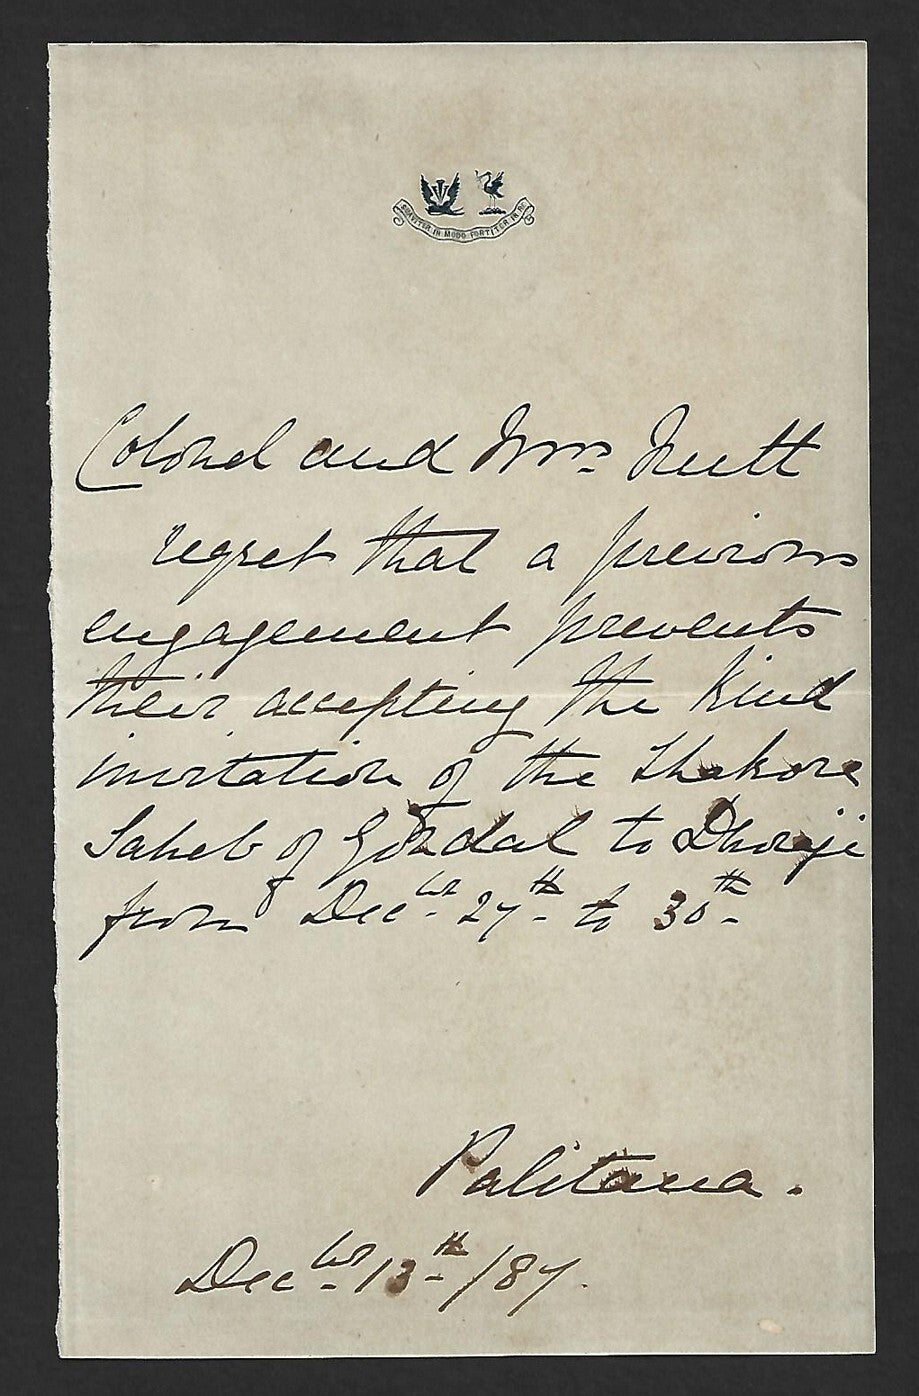 SUAVITER IN MODO FORTITER IN RE
Colonel and Mrs. Nutt
regret that a previous
engagement prevents
their accepting the kind
invitation of the Thakore
Saheb of Gondal to Dhoraji
from Decbr. 27th. to 30th.
Palitana.
Decbr. 13th./87.